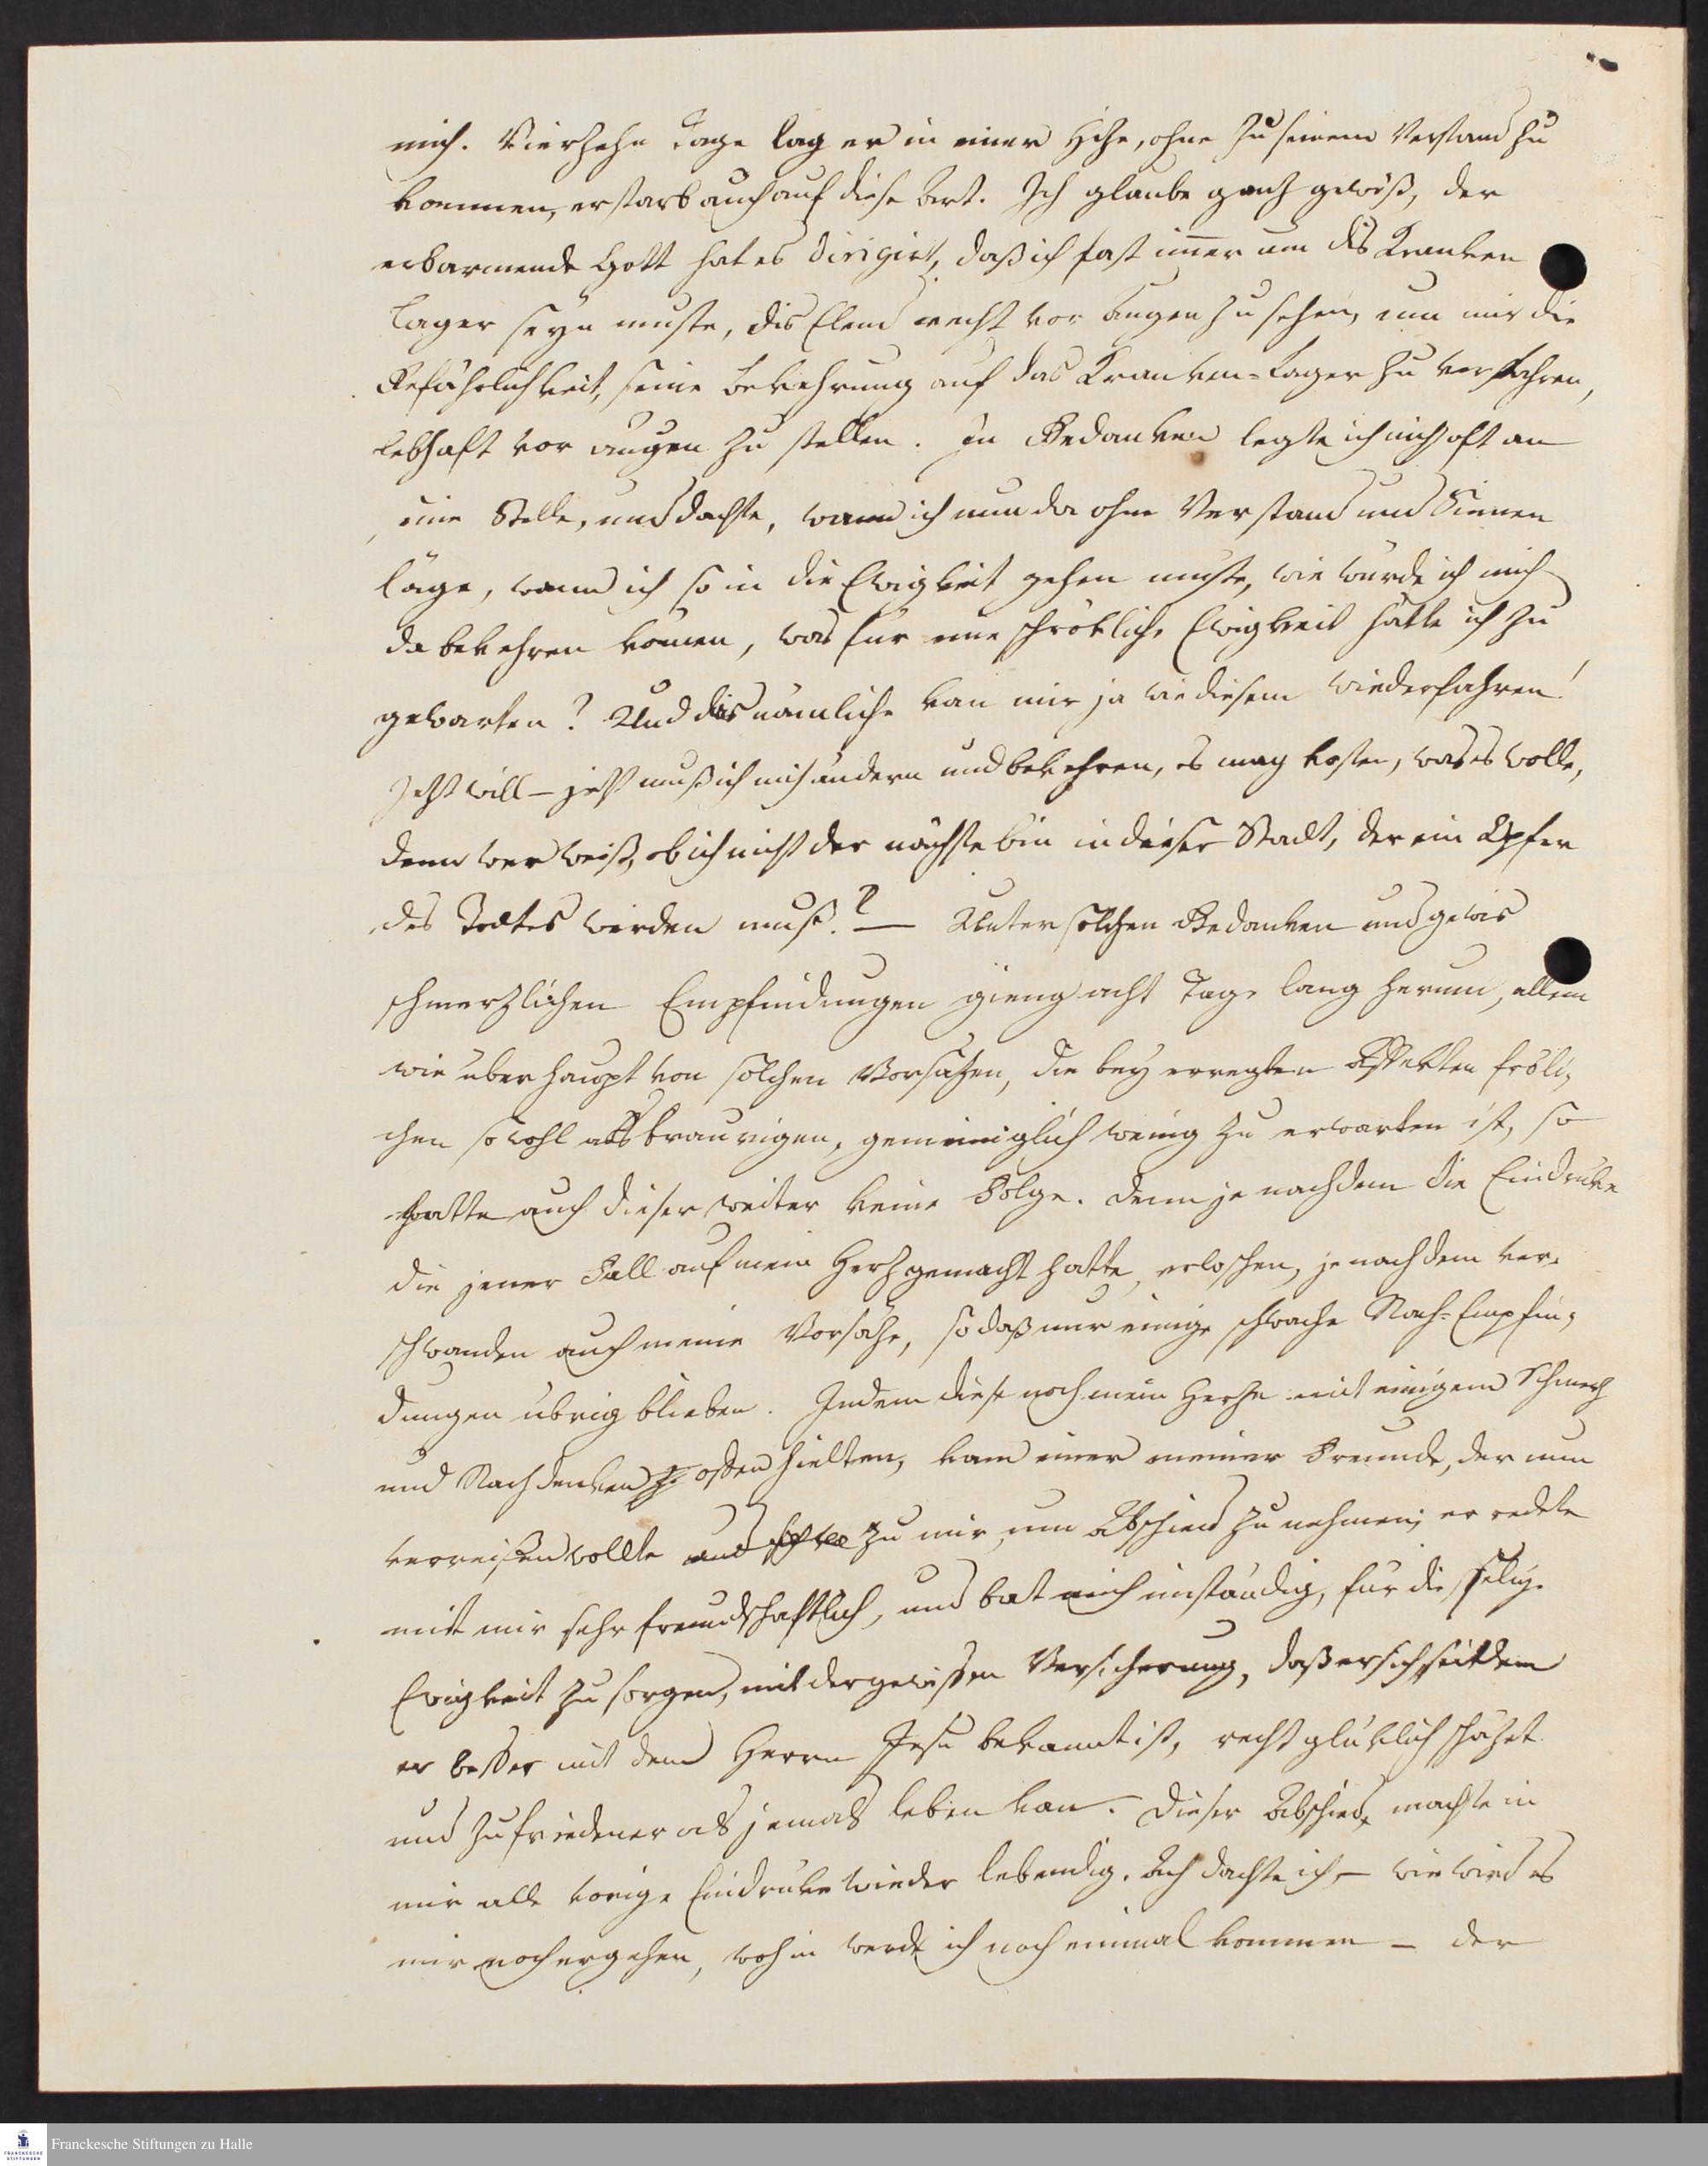 mich. Vierzehn Tage lag er in einer Hize, ohne zu seinem Verstand zu
kommen, er starb auch auf diese Art. Ich glaube ganz gewiß, der
erbarmende Gott hat es dirigirt, daß ich fast im̅er um des Kranken
Lager seyn muste, dis Elend recht vor Augen zu sehen, um mir die
Gefährlichkeit, seine Bekehrung auf das Kranken-Lager zu versparen,
lebhaft vor augen zu stellen. In Gedanken legte ich mich oft an
eine Stelle, und dachte, wann ich nun da ohne Verstand und Sinnen
läge, wann ich so in die Ewigkeit gehen muste, wie würde ich mich
da bekehren können, was für eine schrökliche Ewigkeit hätte ich zu
gewarten? Und das nämliche kan mir ja wie diesem wiederfahren!
Jezt will – jezt muß ich mich ändern und bekehren, es mag kosten, was es wolle,
denn wer weiß, ob ich nicht der nächste bin in dieser Stadt, der ein Opfer
des Todtes werden muß.? — Unter solchen Gedanken und gewis
schmerzlichen Empfindungen gieng acht Tage lang herum, allein
wie überhaupt von solchen Vorsäzen, die bey erregten Affekten fröli-
chen sowohl als traurigen, gemeiniglich wenig zu erwarten ist, so
hatte auch dieser weiter keine Folge. Denn je nachdem die Eindrüke
die jener Fall auf mein Herz gemacht hatte, erloschen, je nachdem ver-
schwanden auch meine Vorsäze, so daß nur einige schwache Nach-Empfin-
dungen übrig blieben. Indem diese noch mein Herze mit einigem Schmerz
und Nachdenken offen hielten, kam einer meiner Freunde, der nun
verreisen wollte zu mir, um Abschied zu nehmen; er redete
mit mir sehr freundschaftlich, und bat mich inständig, für die selige
Ewigkeit zu sorgen, mit der gewissen Versicherung, daß er sich seitdem
er besser mit dem Herrn Jesu bekannt ist, recht glüklich schäzet
und zufriedener als jemals leben kan. Dieser Abschied machte in
mir alle vorige Eindrüke wieder lebendig. Ach dachte ich, – wie wird es
mir noch ergehen, wohin werde ich noch einmal kommen – der
Franckesche Stiftungen zu Halle
FRANCKESCHE
STIFTUNGEN